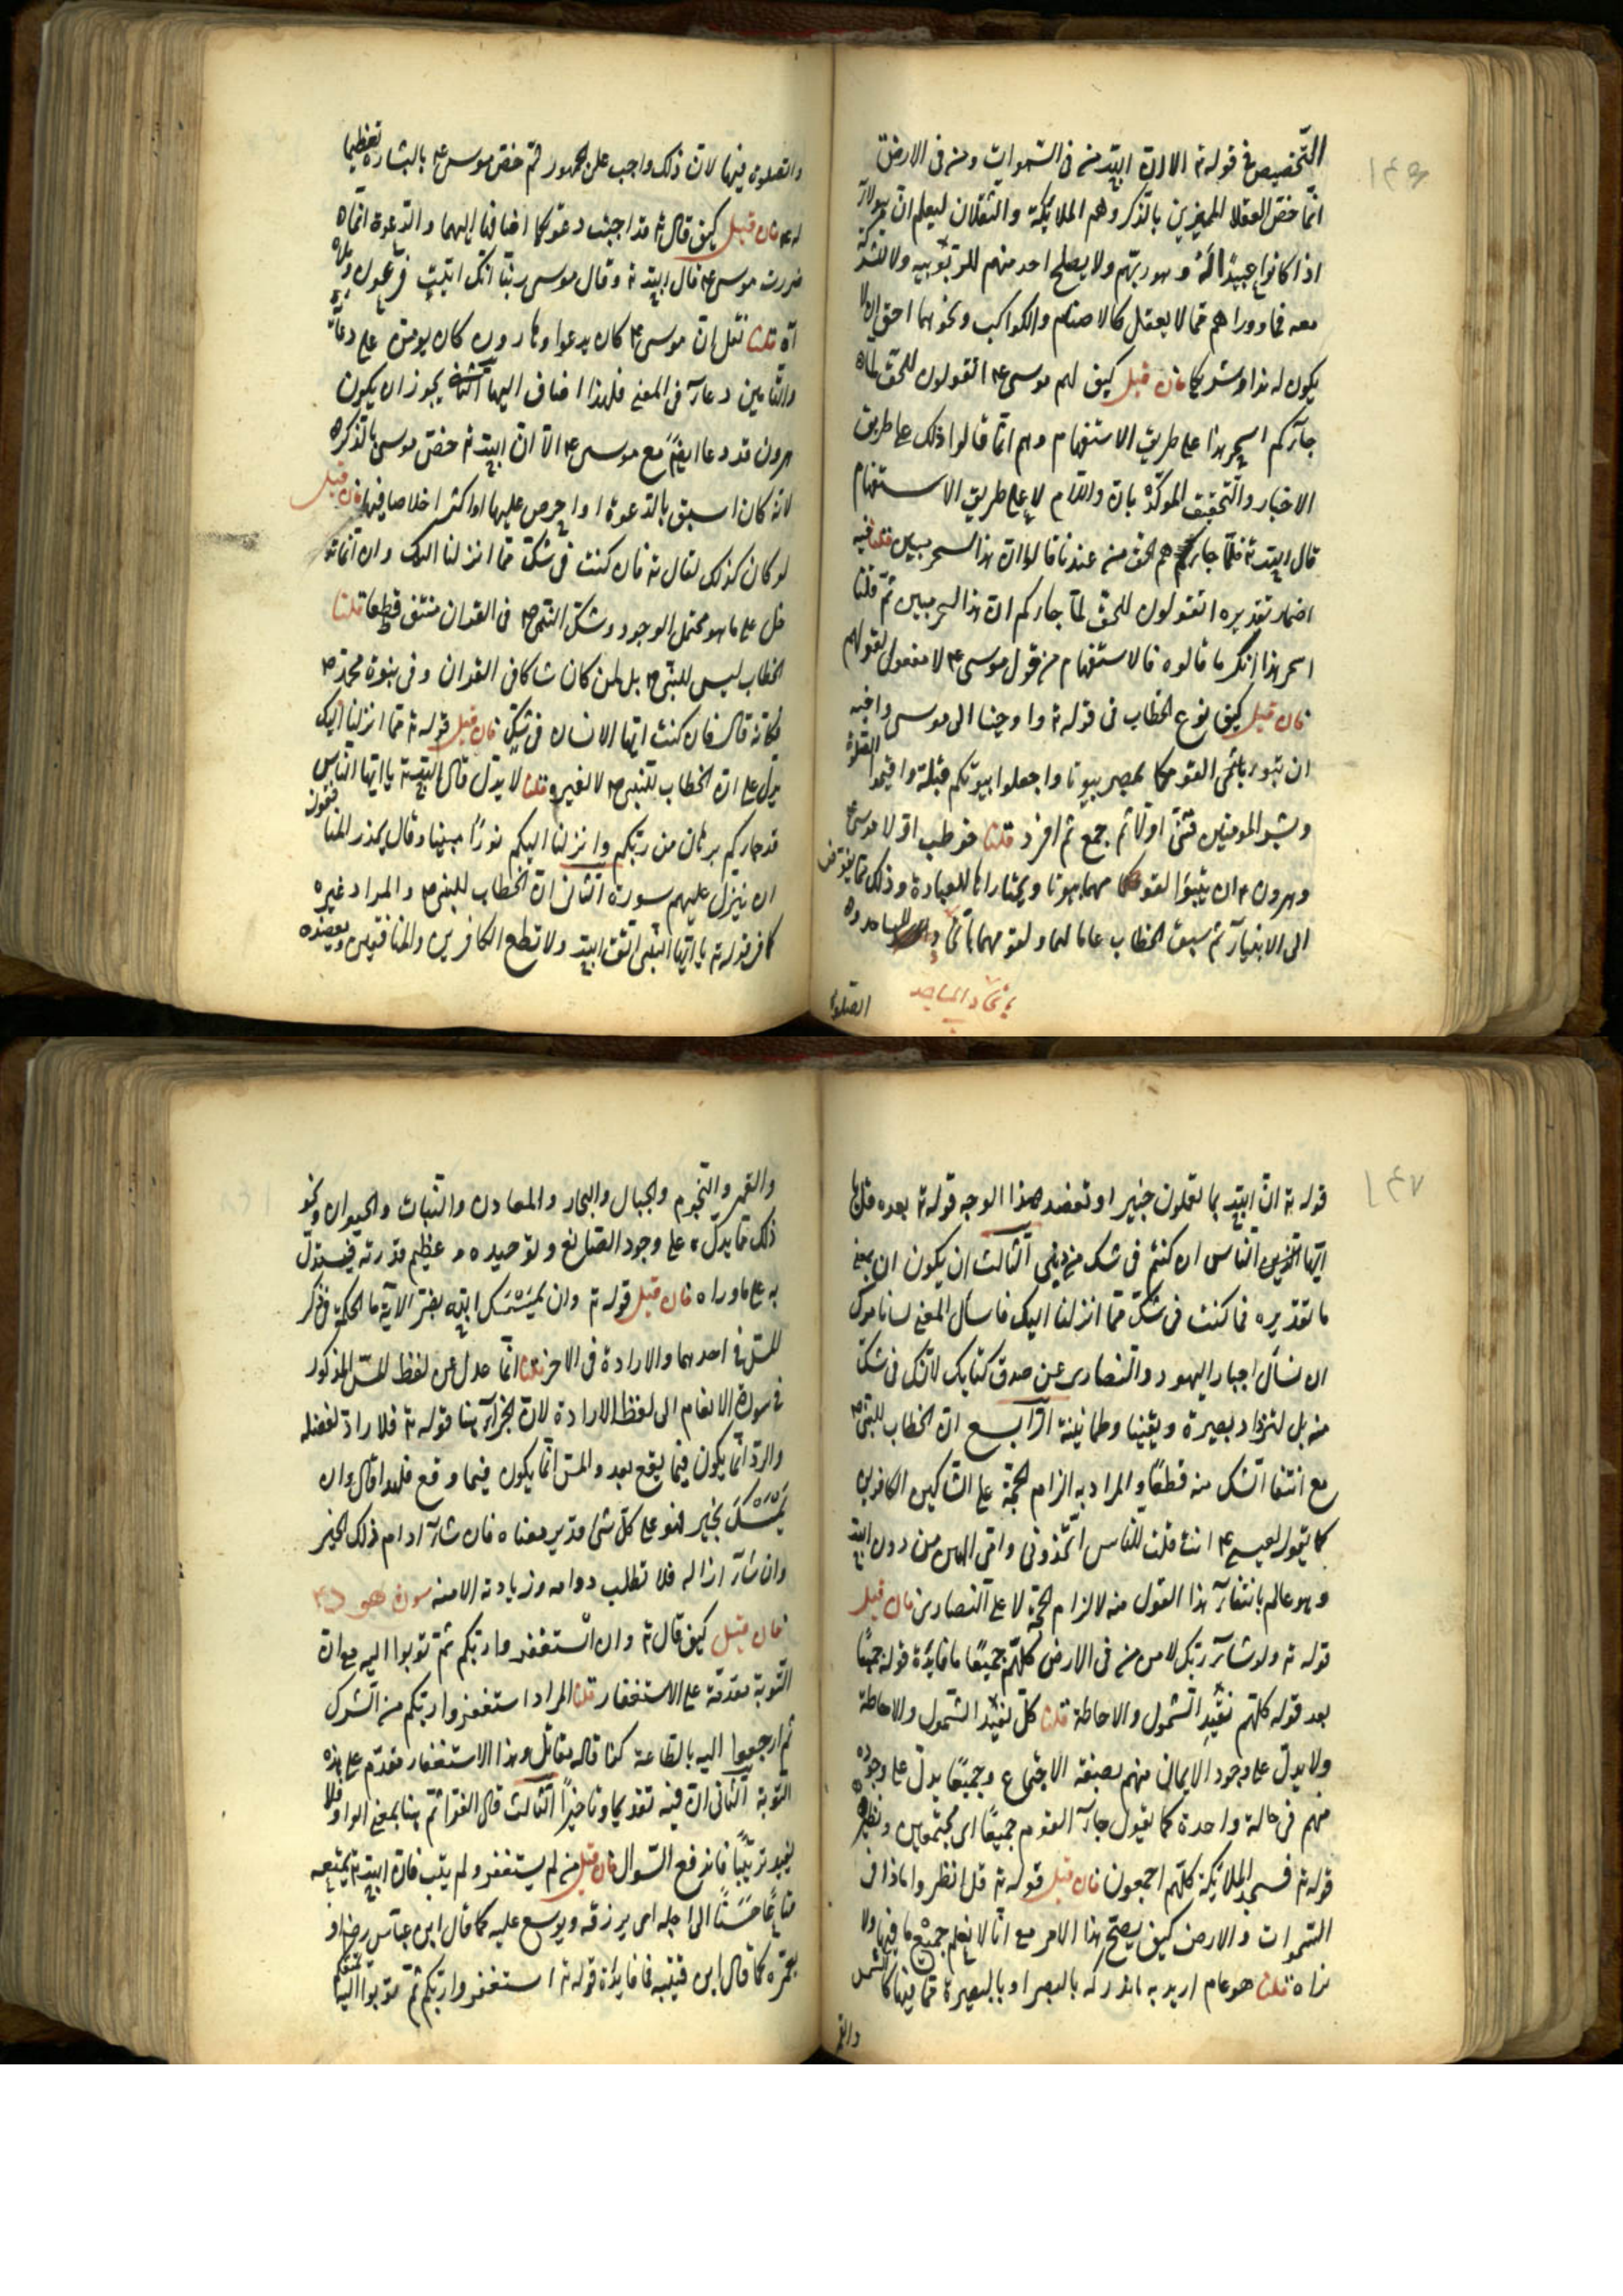 ١٤٦
التخصيص في قوله تع الا ان الله من في السموات ومن في الارض
انما خص العقلا المميزين بالذكر وهم الملائكة والثقلان ليعلم ان هولاء
اذا كانوا عبيدا له وهو ربهم ولا يصلح احد منهم للربوبيه ولا للشركة
معه فما وراهم مما لا يعقل كالاصنام والكواكب ونحوهما احق ان لا
يكون له ندا وشريكا فان قيل كيف لهم موسى ع م اتقولون للحق لما
جاءكم اسحر هذا على طريق الاستفهام وهم انما قالوا ذلك على طريق
الاخبار والتحقيق الموكد بان واللام لا على طريق الاستفهام
قال الله تع فلما جاءهم الحق من عندنا قالوا ان هذا لسحر مبين قلنا فيه
اضمار تقديره اتقولون للحق لما جاءكم ان هذا لسحر مبين ثم قلنا
اسحر هذا انكر ما قالوه فالاستفهام من قول موسى ع م لا مفعول لقولهم
فان قيل كيف نوع الخطاب في قوله تع واوحينا الى موسى واخيه
ان تبوءا لقومكما بمصر بيوتا واجعلوا بيوتكم قبلة واقيموا الصلوة
وبشر المومنين فثنى اولا ثم جمع ثم افرد قلنا خوطب اولا موسى
وهرون ع م ان يتبوا لقومهما بيوتا ويختاراها للعبادة وذلك مما يفوض
الى الانبياء ثم سيق الخطاب عاما لهما ولقومهما
باتخاذ المساجد
الصلوة
والصلوة فيها لان ذلك واجب على الجمهور ثم خص موسى ع م بالبشارة تعظيما
له فان قيل كيف قال تع قد اجيبت دعوتكما اضافها اليهما والدعوة انما
صدرت موسى ع م قال الله تع وقال موسى ربنا انك اتيت فرعون وملاه
قلنا نقل ان موسى ع م كان يدعوا وهارون كان يومن على دعائه
والتامين دعاء في المعنى فلهذا اضاف اليهما الثاني يجوز ان يكون
هرون قد دعا ايضا مع موسى ع م الا ان الله تع خص موسى بالذكر
لانه كان اسبق بالدعوة او احرص عليها او اكثر اخلاصا فيها فان قيل
لو كان كذلك لقال تع فان كنت في شك مما انزلنا اليك وان انما تد
خل على ما هو محتمل الوجود وشك النبي ص م في القران منتف قطعا قلنا
الخطاب ليس للنبي ص م بل لمن كان شاكا في القران وفي نبوة محمد ص م
فكانه قال فان كنت ايها الانسان في شك فان قيل قوله تع مما انزلنا اليك
يدل على ان الخطاب للنبي ص م لا لغيره قلنا لا يدل قال الله تع يا ايها الناس
قد جاءكم برهان من ربكم وانزلنا اليكم نورا مبينا وقال يحذر المنافقون
ان تنزل عليهم سورة الثاني ان الخطاب للنبي ص م والمراد غيره
كما في قوله تع يا ايها النبي اتق الله ولا تطع الكافرين والمنافقين ويعضده
١٤٧
قوله تع ان الله بما تعملون خبيرا وتعضد هذا الوجه قوله تع بعده قل يا
ايها الناس ان كنتم في شك من ديني الثالث ان يكون ان بمعنى
ما تقديره فما كنت في شك مما انزلنا اليك فاسال المعنى لسنا نامرك
ان نسال احبار اليهود والنصارى عن صدق كتابك لانك في شك
منه بل لتزداد بصيرة ويقينا وطمانينة الرابع ان الخطاب للنبي ص م
مع انتفا الشك منه قطعا والمراد به الزام الحجة على الشاكين الكافرين
كما يقول لعيسى ع م انت قلت للناس اتخذوني وامي الهين من دون الله
وهو عالم بانتفاء هذا القول منه لالزام الحجة لا على النصارى فان قيل
قوله تع ولو شاء ربك لامن من في الارض كلهم جميعا ما فايدة قوله جميعا
بعد قوله كلهم تفيد الشمول والاحاطة قلنا كل تفيد الشمول والاحاطة
ولا يدل على وجود الايمان منهم بصفة الاجتماع وجميعا يدل على وجوده
منهم في حالة واحدة كما يقول جاء القوم جميعا اى مجتمعين ونظيره
قوله تع فسجد الملائكة كلهم اجمعون فان قيل قوله تع قل انظروا ماذا في
السموات والارض كيف يصح هذا الامر مع انا لا نعلم جميع ما فيهما ولا
نراه قلنا هو عام اريد به ما ندركه بالبصر او بالبصيرة مما فيهما كالشمس
والقمر
والقمر والنجوم والجبال والبحار والمعادن والنبات والحيوان ونحو
ذلك مما يدل على وجود الصانع وتوحيده وعظيم قدرته فيستدل
به على ما وراه فان قيل قوله تع وان يمسسك الله بضر الآية ما الحكمة في ذكر
المس في احدهما والارادة في الاخر قلنا انما عدل عن لفظ المس المذكور
في سورة الانعام الى لفظ الارادة لان الجزاء هنا قوله تع فلا راد لفضله
والرد انما يكون فيما يقع بعد والمس انما يكون فيما وقع فلهذا قال وان
يمسسك بخير فهو على كل شئ قدير معناه فان شاء ادام ذلك الخير
وان شاء ازاله فلا تطلب دوامه وزيادته الا منه سورة هود ع م
فان قيل كيف قال تع وان استغفروا ربكم ثم توبوا اليه مع ان
التوبة مقدمة على الاستغفار قلنا المراد استغفروا ربكم من الشرك
ثم ارجعوا اليه بالطاعة كذا قاله مقاتل وهذا الاستغفار مقدم على هذه
التوبة الثاني ان فيه تقديما وتاخيرا الثالث قال الفرا ثم هنا بمعنى الواو فلا
يفيد ترتيبا فاندفع السوال فان قيل من لم يستغفر ولم يتب فان الله تع يمتعه
متاعا حسنا الى اجله اى يرزقه ويوسع عليه كما قال ابن عباس رض او
يعمره كما قال ابن قتيبه فما فايدة قوله تع استغفروا ربكم ثم توبوا اليه يمتعكم